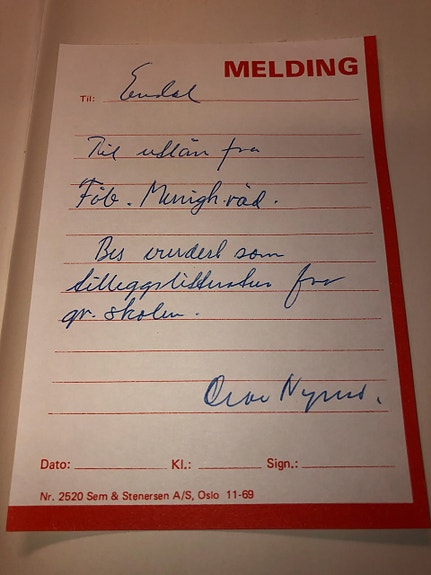 MELDING
Til: Endal
Til utlån fra
Föb. Munigh.råd.
Bes vurdert som
tilleggslitteratur for
gr. skolen.
Dato: Kl.: Sign.:
Nr. 2520 Sem & Stenersen A/S, Oslo 11-69